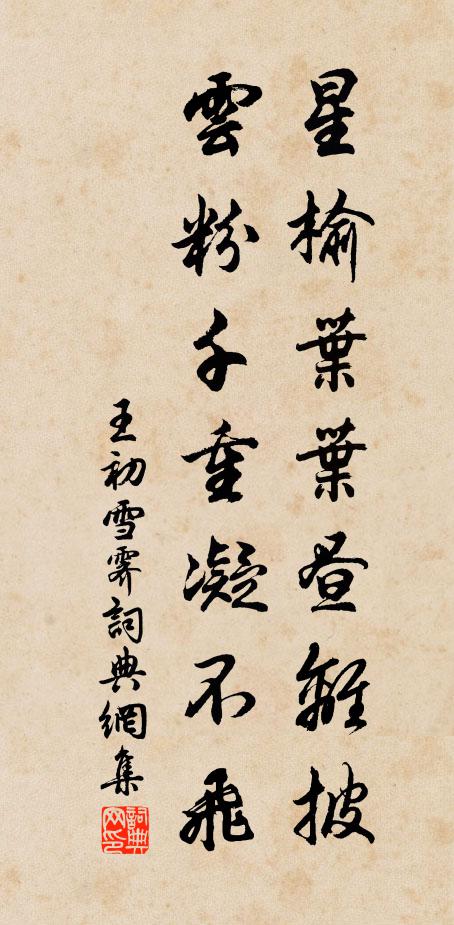 星榆葉葉昼離披
雲粉千重凝不飛
王初雪霽詞典網集
詞典
网印